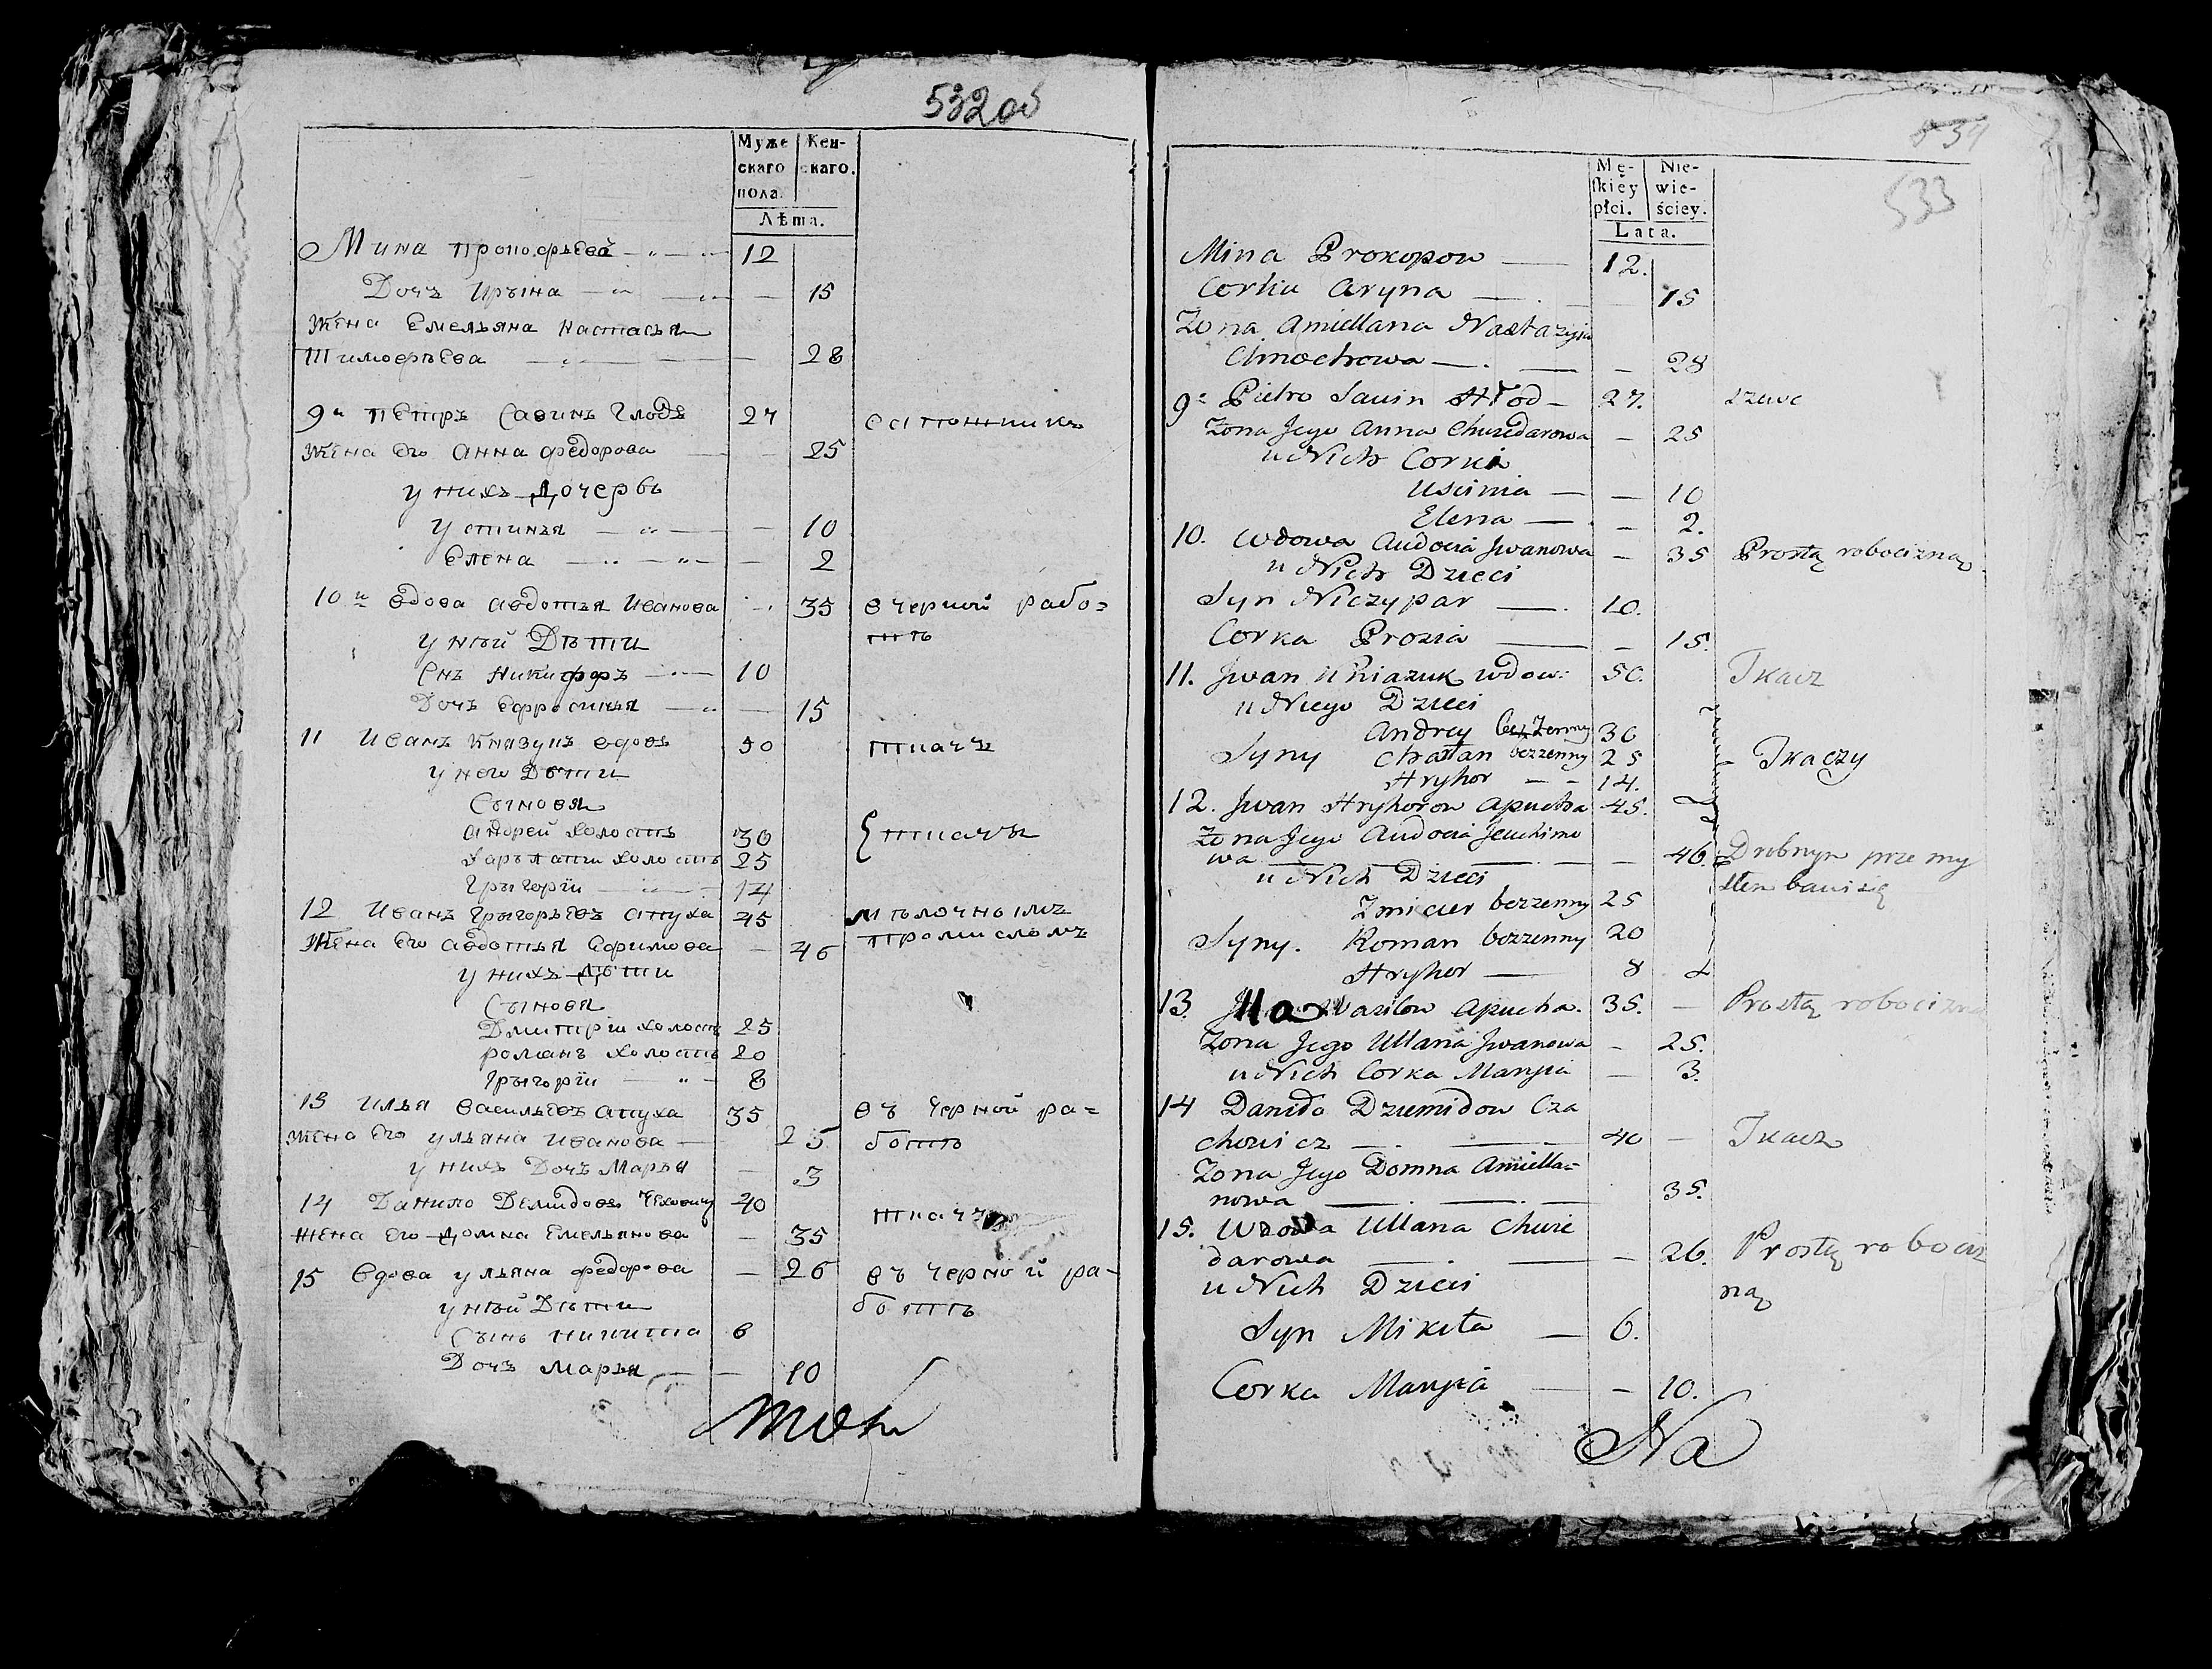 532 об
Муже
скаго
пола.
Жен-
скаго.
Лѣта.
Мина Прокофьевъ 12
Дочь Ирына 15
Жена Емельяна Настасья
Тимофѣева 28
9й Петръ Савинъ Глодъ 27 сапожникъ
Жена его Анна Федорова 25
у нихъ дочерѣ
Устинья 10
Елена 2
10й вдова Авдотья Иванова 35 в черной рабо=
у ней Дѣти тѣ
Снъ Никифоръ 10
Дочь Ефросинья 15
11 Иванъ Князукъ вдовъ 50 ткачъ
у него Дѣти
Сыновя
Андрей холостъ 30 ткачъ
Харытанъ холостъ 25
Грыгорiи 14
12 Иванъ Грыгорьевъ Апуха 45 мѣлочнымъ
Жена его Авдотья Ефимова 46 промисломъ
у нихъ дѣти
Сыновя
Дмитрiи холостъ 25
Романъ холостъ 20
Грыгорiи 8
13 Илья Васильевъ Апуха 35 въ черной ра=
Жена его Ульяна Иванова 25 ботѣ
у нихъ Дочь Марья 3
14 Данило Демидовъ Чеховичъ 40 ткачъ
Жена его Домна Емельянова 35
15 Вдова Ульяна Федорова 26 въ черной ра-
у ней Дѣти ботѣ
Сынъ Никита 6
Дочь Марья 10
533
Mę-
skiey
płci.
Nie-
wie-
ściey.
Lata.
Mina Prokopow 12.
Corka Aryna 15
Zona Amiellana Nastazyia
Cimochowa 28
9. Pietro Sawin Hłod 27. szewc
Zona Jego Anna Chwedarowa 25
u Nich Corki
Uscinia 10
Elena 2.
10. Wdowa Audocia Jwanowa 35 Prostą robocizną
u Nich Dzieci
Syn Niczypar 10.
Corka Prozia 15.
11. Jwan Kniazuk wdow: 50. Tkacz
u Niego Dzieci
Andrey bezzenny 30
Syny Charłan bezzenny 25 Tkaczy
Hryhor 14.
12. Jwan Hryhorow Apucha 45.
Zona Jego Audocia Jeuchimo
wa 46. Drobnym przemy
u Nich Dzieci słem bawi się
Zmicier bezzenny 25
Syny. Roman bezzenny 20
Hryhor 8
13. Wasilow Apucha. 35. Prostą robocizną
Zona Jego Ullana Jwanowa 25.
u Nich Corka Maryia 3.
14 Daniło Dziemidow Cza
chowicz 40 Tkacz
Zona Jego Domna Amiella=
nowa 35.
15. Wdowa Ullana Chwie
darowa 26. Prostą robociz
u Nich Dzieci ną
Syn Mikita 6.
Corka Maryia 10.
Na